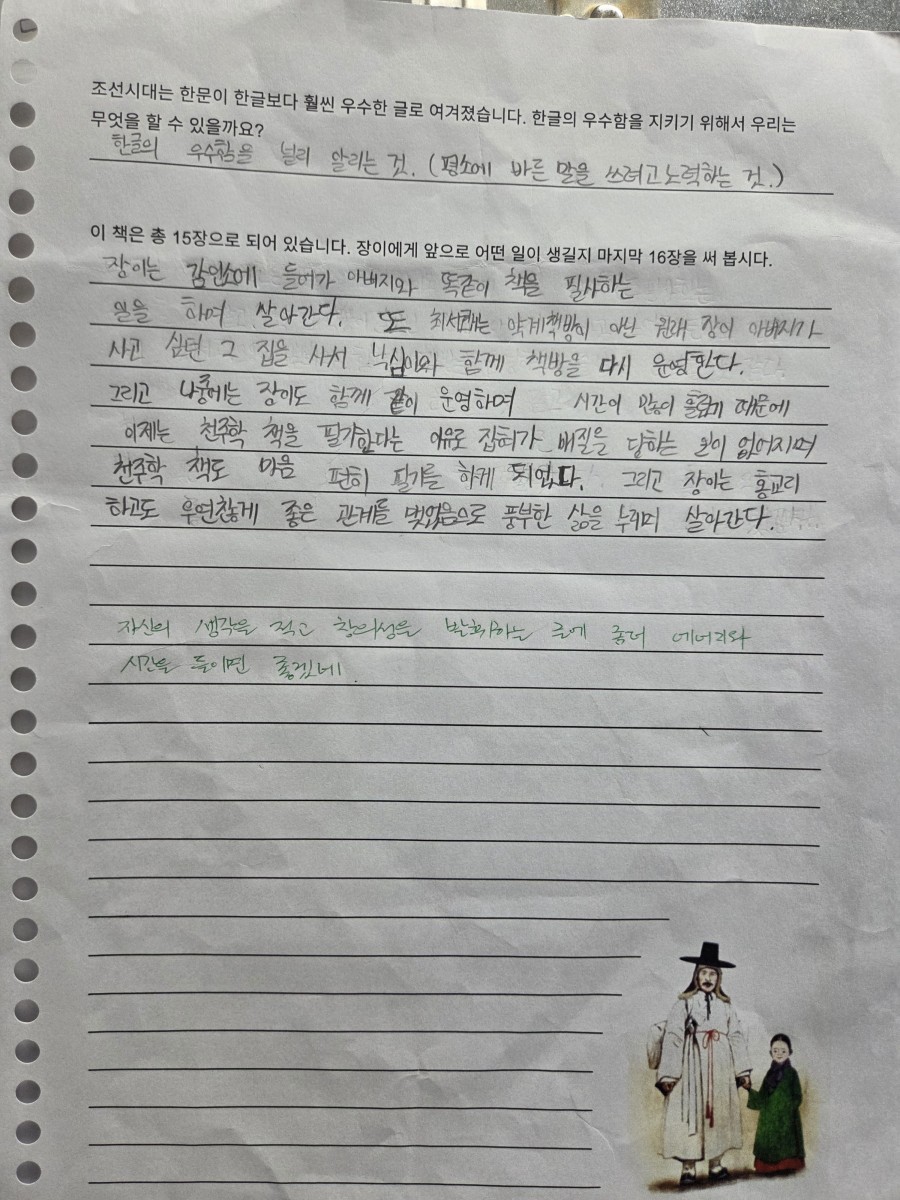 조선시대는 한문이 한글보다 훨씬 우수한 글로 여겨졌습니다. 한글의 우수함을 지키기 위해서 우리는
무엇을 할 수 있을까요?
한글의 우수함을 널리 알리는 것. (평소에 바른 말을 쓰려고 노력하는 것.)
이 책은 총 15장으로 되어 있습니다. 장이에게 앞으로 어떤 일이 생길지 마지막 16장을 써 봅시다.
장이는 들어가 아버지와 똑같이 책을 필사하는
일을 하며 살아간다. 또 최서쾌는 약계책방이 아닌 원래 장이 아버지가
사고 싶던 그 집을 사서 낙심이와 함께 책방을 다시 운영한다.
그리고 나중에는 장이도 함께 같이 운영하며 시간이 많이 흘렀기 때문에
이제는 천주학 책을 필사한다는 이유로 잡혀가 매질을 당하는 일이 없어지며
천주학 책도 마음 편히 필기를 하게 되었다. 그리고 장이는 홍교리
하고도 우연찮게 좋은 관계를 맺었음으로 풍부한 삶을 누리며 살아간다.
자신의 생각을 적고 창의성을 발휘하는 글에 좀더 에너지와
시간을 들이면 좋겠네.